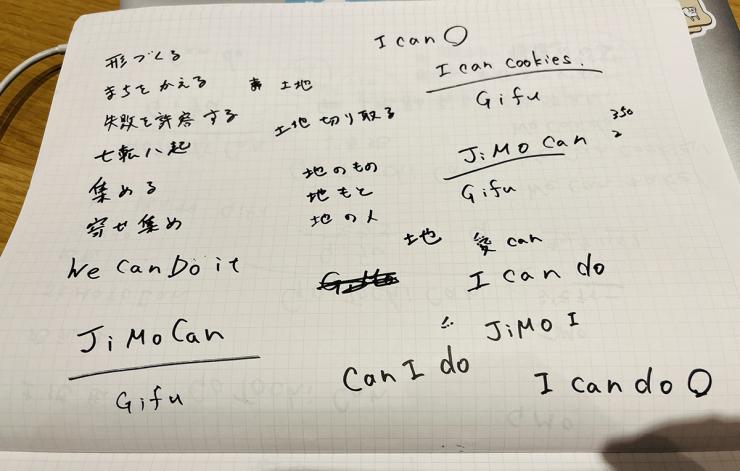 I can ○
形づくる
I can cookies.
まちをかえる
土地
Gifu
失敗を許容する
土地切り取る
350
2
七転八起
JiMo Can
Gifu
集める
地のもの
地もと
寄せ集め
地の人
土地
愛 can
We Can Do it
I can do
JiMo Can
JiMO I
Gifu
Can I do
I can do ○